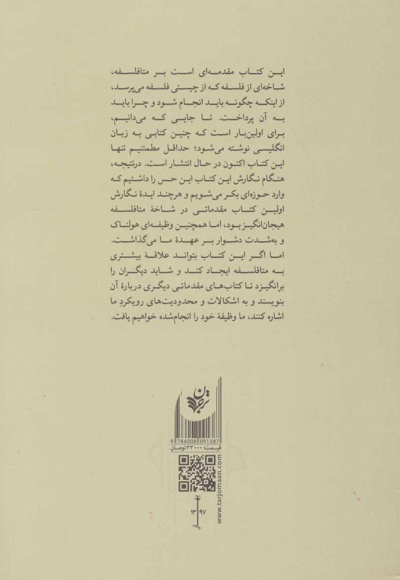 این کتاب مقدمه‌ای است بر متافلسفه،
شاخه‌ای از فلسفه که از چیستی فلسفه می‌پرسد،
از اینکه چگونه باید انجام شود و چرا باید
به آن پرداخت. تا جایی که می‌دانیم،
برای اولین‌بار است که چنین کتابی به زبان
انگلیسی نوشته می‌شود؛ حداقل مطمئنیم تنها
این کتاب اکنون در حال انتشار است. درنتیجه،
هنگام نگارش این کتاب این حس را داشتیم که
وارد حوزه‌ای بکر می‌شویم و هرچند ایدهٔ نگارش
اولین کتاب مقدماتی در شاخهٔ متافلسفه
هیجان‌انگیز بود، اما همچنین وظیفه‌ای هولناک
و به‌شدت دشوار بر عهدهٔ ما می‌گذاشت.
اما اگر این کتاب بتواند علاقهٔ بیشتری
به متافلسفه ایجاد کند و شاید دیگران را
برانگیزد تا کتاب‌های مقدماتی دیگری دربارهٔ آن
بنویسند و به اشکالات و محدودیت‌های رویکرد ما
اشاره کنند، ما وظیفهٔ خود را انجام‌شده خواهیم یافت.
ترجمان
9786008091387
قیمت: ۲۳۰۰۰ تومان
www.tarjomaan.com
۱۳ ۹۷